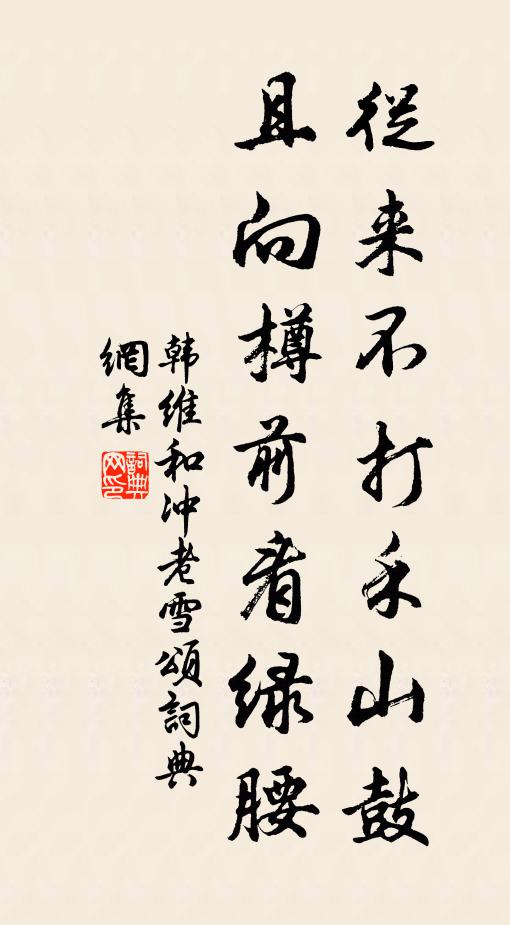 從来不打禾山鼓
且向樽前看绿腰
韩维和冲老雪頌詞典
網集
詞典
网印